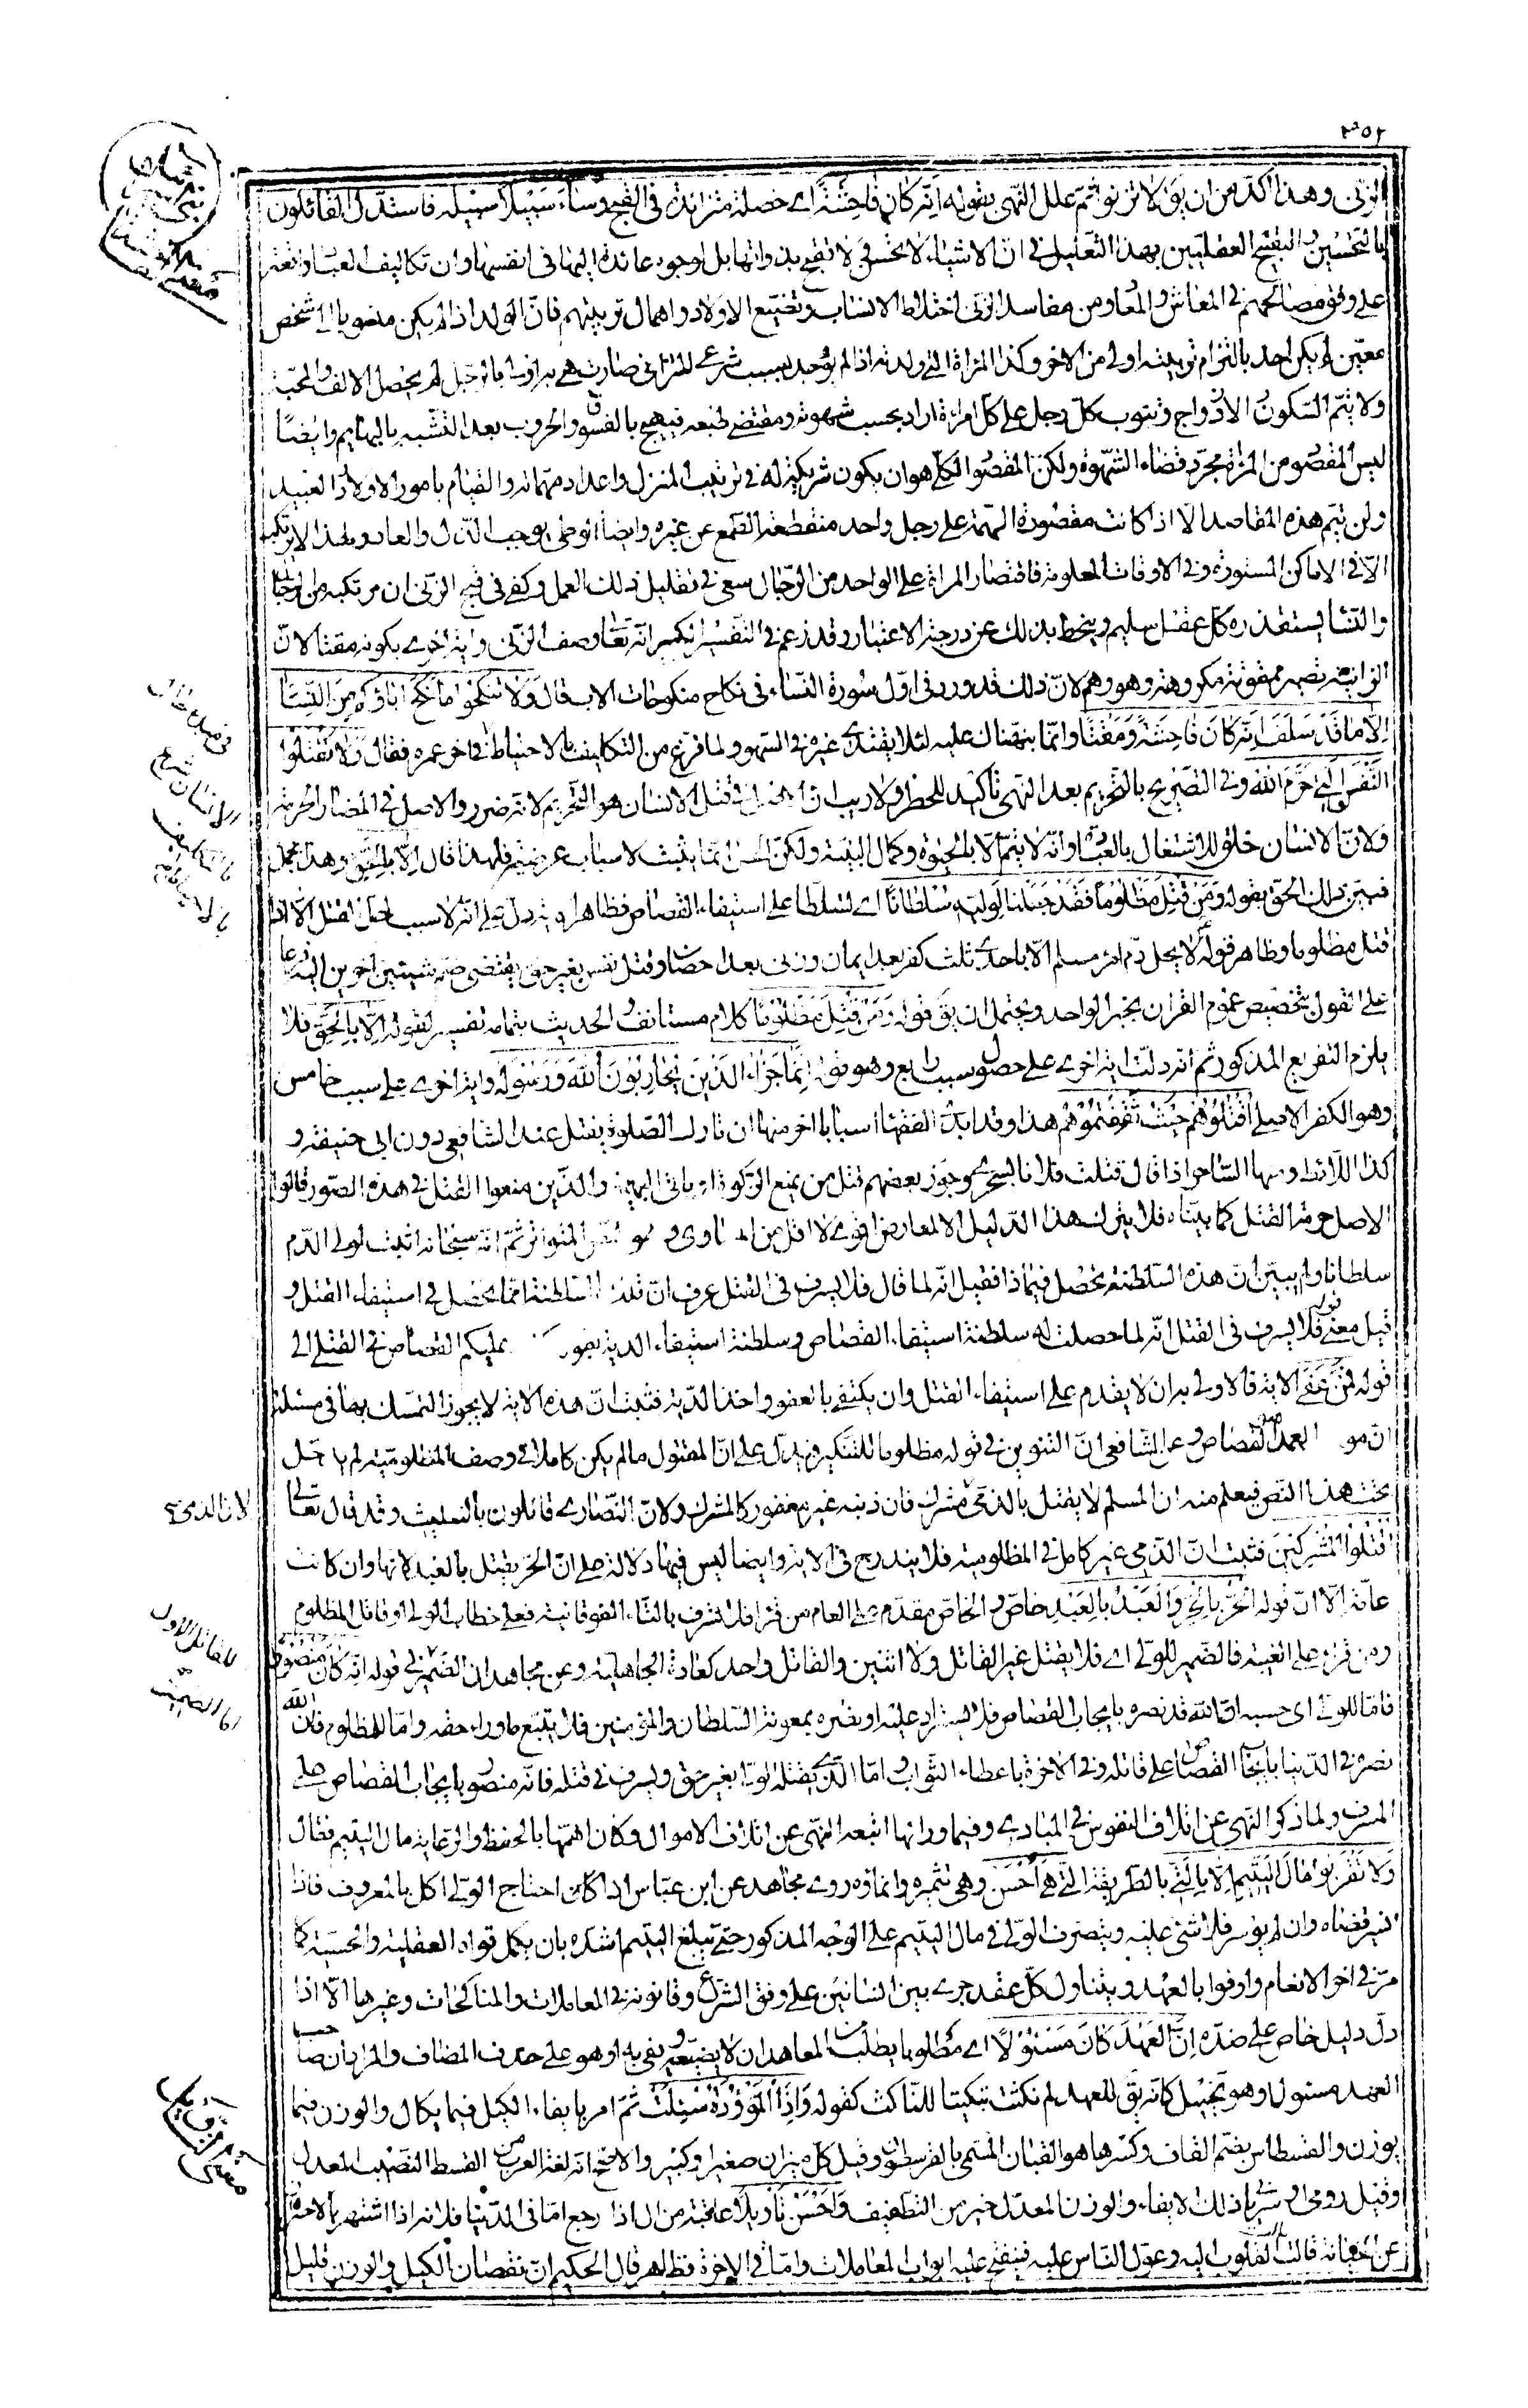 الزنى وهذا اكد من ان يق لا تزنوا ثم علل النهى بقوله انه كان فاحشة اى خصلة متزائدة فى القبح وساء سبيلا سبيله فاستدل القائلون
بالتحسين والتقبيح العقليين بهذا التعليل فى ان الاشياء لا تحسن ولا تقبح بذواتها بل لوجوه عائدة اليها فى انفسها وان تكاليف العباد واقعة
على وفق مصالحهم فى المعاش والمعاد ومن مفاسد الزنى اختلاط الانساب وتضييع الاولاد واهمال تربيتهم فان الولد اذا لم يكن منسوبا الى شخص
معين لم يكن احد بالتزام تربيته اولى من الاخر وكذا المراة التى ولدته اذا لم يوجد سبب شرعى للزانى صارت هى به اولى بأى رجل لم يحصل الالف والمحبة
ولا يتم السكون الازدواج وتنوب كل رجل على كل امراة اراد بحسب شهوته ومقتضى طبعه فيهيج بالفسوق والحروب بعد التشبه بالبهايم وايضا
ليس المقصود من المراة مجرد قضاء الشهوة ولكن المقصود الكلى هو ان يكون شريكة له فى ترتيب المنزل واعداد مهماته والقيام بامور الاولاد والعبيد
ولن يتم هذه المقاصد الا اذا كانت مقصورة الهمة على رجل واحد منقطعة الطمع عن غيره وايضا الوطى يوجب الذل والعار ولهذا لا يرتكب
الا فى الاماكن المستورة وفى الاوقات المعلومة فاقتصار المراة على الواحد من الرجال سعى فى تقليل ذلك العمل وكفى فى قبح الزنى ان مرتكبه من الرجال
والنسا يستقذره كل عقل سليم وينحط بذلك عن درجة الاعتبار وقد زعم فى التفسير الكبير انه تعا وصف الزنى واية اخرى بكونه مقتا لان
الزانية تصير ممقوتة مكروهة وهو وهم لان ذلك قد ورد فى اول سورة النساء فى نكاح منكوحات الاب قال ولا تنكحوا ما نكح اباؤكم من النسا
الا ما قد سلف انه كان فاحشة ومقتا وانما نبهناك عليه لئلا يقتدى غيره فى السهو ولما فرغ من التكاليف بالاحتياط فى اخر عمره فقال ولا تقتلوا
النفس التى حرم الله وفى التصريح بالتحريم بعد النهى تأكيد للحظر ولا ريب ان الاصل فى قتل الانسان هو التحريم لانه ضرر والاصل فى المضار الحرمة
ولان الانسان خلق للاشتغال بالعبادة وانه لا يتم الا بالحيوة وكمال البنية ولكن الحل انما يثبت لاسباب عرضية فلهذا قال الا بالحق وهذا مجمل
فبين ذلك الحق بقوله ومن قتل مظلوما فقد جعلنا لوليه سلطانا اى تسلطا على استيفاء القصاص فظاهر الاية دل على انه لا سبب لحل القتل الا اذا
قتل مظلوما وظاهر قوله لا يحل دم امرء مسلم الا باحدى ثلث كفر بعد ايمان وزنى بعد احصان وقتل نفس بغير حق يقتضى ضم شيئين اخرين اليه بناء
على القول بتخصيص عموم القران بخبر الواحد ويحتمل ان يق قوله ومن قتل مظلوما كلام مستانف والحديث بتمامه تفسير لقوله الا بالحق فلا
يلزم التفريع المذكور ثم انه دلت اية اخرى على حصول سبب رابع وهو قوله انما جزاء الذين يحاربون الله ورسوله واية اخرى على سبب خامس
وهو الكفر الاصلى اقتلوهم حيث ثقفتموهم هذا وقد ابدى الفقها اسبابا اخر منها ان تارك الصلوة يقتل عند الشافعى دون ابى حنيفة و
كذا اللائط ومنها الساحر اذا قال قتلت فلانا بسحرى وجوز بعضهم قتل من يمنع الزكوة او ياتى البهيمة والذين منعوا القتل فى هذه الصور قالوا
الاصل حرمة القتل كما بيناه فلا يترك هذا الدليل الا لمعارض اقوى لا اقل من المساوى وهو النص المتواتر ثم انه سبحانه اثبت لولى الدم
سلطانا ولم يبين ان هذه السلطنة تحصل فيما ذا فقيل انه لما قال فلا يسرف فى القتل عرف ان تلك السلطنة انما يحصل فى استيفاء القتل و
قيل معنى قوله فلا يسرف فى القتل انه لما حصلت له سلطنة استيفاء القصاص وسلطنة استيفاء الدية بقوله عليكم القصاص فى القتلى الى
قوله فمن عفى الاية فالاولى به ان لا يقدم على استيفاء القتل وان يكتفى بالعفو واخذ الدية فثبت ان هذه الاية لا يجوز التمسك بها فى مسئلة
ان موجب العمد القصاص وعن الشافعى ان التنوين فى قوله مظلوما للتنكير فيدل على ان المقتول ما لم يكن كاملا فى وصف المظلومية لم يدخل
تحت هذا النص فيعلم منه ان المسلم لا يقتل بالذمى مشرك فان ذنبه غير مغفور كالمشرك ولان النصارى قائلون بالتثليث وقد قال تعالى
اقتلوا المشركين فثبت ان الذمى غير كامل فى المظلومية فلا يندرج فى الاية وايضا ليس فيها دلالة على ان الحر يقتل بالعبد لانها وان كانت
عامة الا ان قوله الحر بالحر والعبد بالعبد خاص والخاص مقدم على العام من قرا فلا تسرف بالتاء الفوقانية فعلى خطاب الولى او قاتل المظلوم
ومن قرا على الغيبة فالضمير للولى اى فلا يقتل غير القاتل ولا اثنين والقاتل واحد كعادة الجاهلية وعن مجاهد ان الضمير فى قوله انه كان منصورا
فاما للولى اى حسبه ان الله قد نصره بايجاب القصاص فلا يستزد عليه او نصره بمعونة السلطان والمؤمنين فلا يتبع ما وراء حقه واما للمظلوم فان الله
نصره فى الدنيا بايجاب القصاص على قاتله وفى الاخرة باعطاء الثواب واما الذى يقتله الولى بغير حق ويسرف فى قتله فانه منصور بايجاب القصاص على
المسرف ولما ذكر النهى عن اتلاف النفوس فى المبادى وفيما ورائها اتبعه النهى عن اتلاف الاموال وكان اهمها بالحفظ والرعاية مال اليتيم فقال
ولا تقربوا مال اليتيم الا بالتى بالطريقة التى هى احسن وهى تثميره وانماؤه روى مجاهد عن ابن عباس اذا كان احتاج الولى اكل بالمعروف فاذا
ايسر قضاه وان لم يوسر فلا شئ عليه ويتصرف الولى فى مال اليتيم على الوجه المذكور حتى يبلغ اليتيم اشده بان يكمل قواه العقلية والحسية كما
مر فى اخر الانعام واوفوا بالعهد ويتناول كل عقد جرى بين انسانين على وفق الشرع وقانونه فى المعاملات والمناكحات وغيرها الا اذا
دل دليل خاص على ضده ان العهد كان مسئولا اى مطلوبا يطلب من المعاهد ان لا يضيعه ويفى به او هو على حذف المضاف والمراد ان صاحب
العهد مسئول وهو تخييل كانه يق للعهد لم نكثت تبكيتا للناكث كقوله واذا الموؤدة سئلت ثم امر بايفاء الكيل فيما يكال والوزن فيما
يوزن والقسطاس بضم القاف وكسرها هو القبان المسمى بالقرسطون وقيل كل ميزان صغير او كبير والاصح انه لغة العرب من القسط النصيب المعدل
وقيل رومى او سريانى ذلك الايفاء والوزن المعدل خير من التطفيف واحسن تاويلا عاقبة من ال اذا رجع اما فى الدنيا فلانه اذا اشتهر بالاحتراز
عن الخيانة مالت القلوب اليه وعول الناس عليه فينفتح عليه ابواب المعاملات واما فى الاخرة فظاهر قال الحكيم ان نقصان الكيل والوزن قليل
لان الذمى
للقاتل الاول